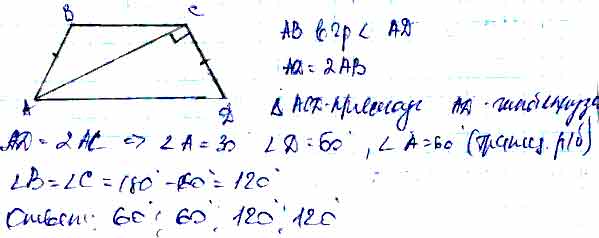 B C
A D
AB в 2р < AD
AD = 2AB
Δ ACD - прямоуг AD - гипотенуза
AD = 2AC => ∠A = 30 ∠D = 60°, ∠A = 60° (трапец. р/б)
∠B = ∠C = 180° - 60° = 120°
Ответ: 60°; 60°, 120°, 120°